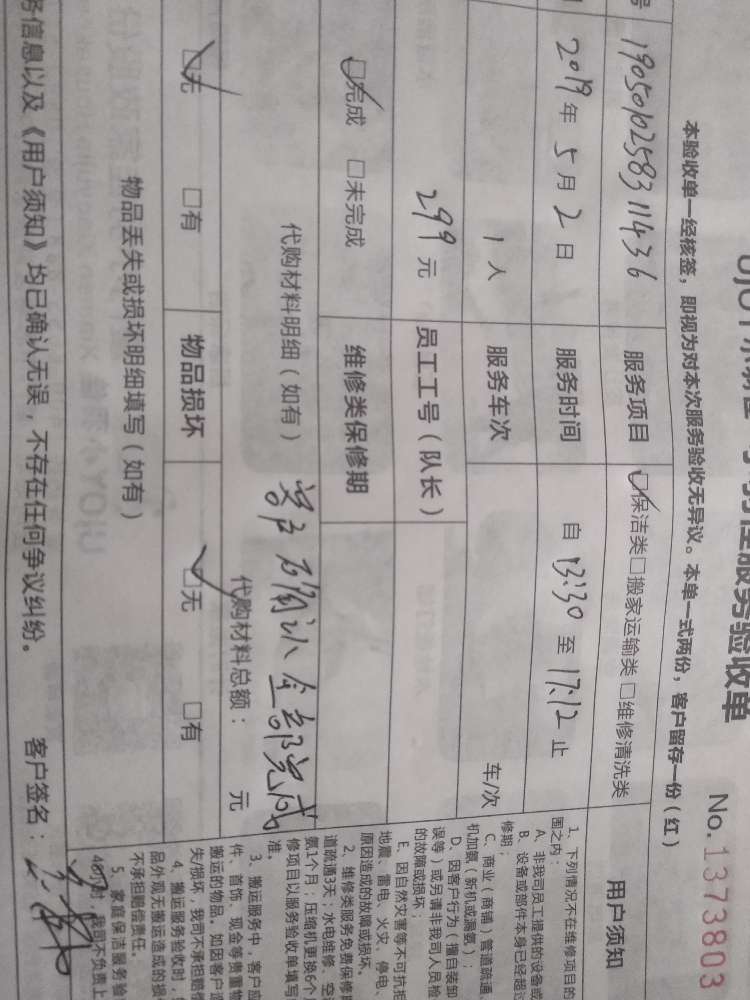 服务验收单
No.1373803
本验收单一经核签，即视为对本次服务验收无异议。本单一式两份，客户留存一份（红）
号 1905010258311436 服务项目 ☑保洁类□搬家运输类□维修清洗类
2019年5月2日 服务时间 自 13:30 至 17:12 止
1 人 服务车次 车/次
299 元 员工工号（队长）
☑完成 □未完成 维修类保修期
代购材料明细（如有）
客户确认全部完成
代购材料总额： 元
☑无 □有 物品损坏 ☑无 □有
物品丢失或损坏明细填写（如有）
务信息以及《用户须知》均已确认无误，不存在任何争议纠纷。 客户签名：
用户须知
1、下列情况不在维修项目的
围之内：
A、非我司员工提供的设备或
B、设备或部件本身已经超过
修期；
C、商业（商铺）管道疏通
机加氨（新机或漏氨）；
D、因客户行为（擅自装卸
误等）或另请非我司人员检
的故障或损坏；
E、因自然灾害等不可抗拒
地震、雷电、火灾、停电、
原因造成的故障或损坏。
2、维修类服务免费保修期
道疏通3天；水电维修、空
氨1个月；压缩机更换6个月
修项目以服务验收单填写
准。
3、搬运服务中，客户应
件、首饰、现金等贵重物
搬运的物品。如因客户
失/损坏，我司不承担赔偿
4、搬运服务验收时，
品外观无搬运造成的损
不承担赔偿责任。
5、家庭保洁服务验
48小时，我司不负责上